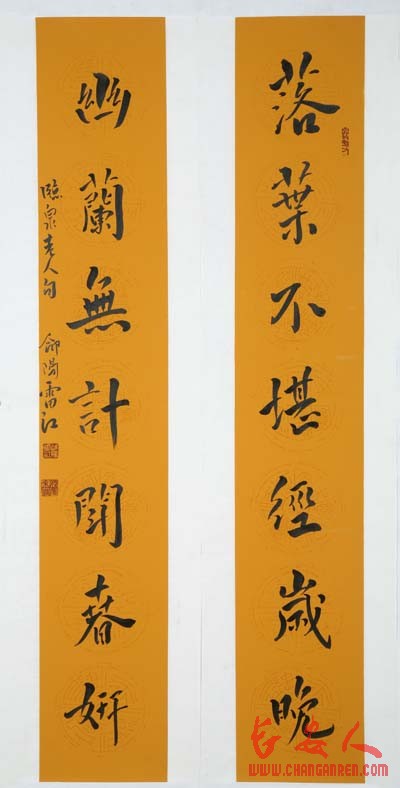 落葉不堪經歲晚
幽蘭無計鬥春妍
臨泉老人句 郃陽雷江
长安人
WWW.CHANGANREN.COM